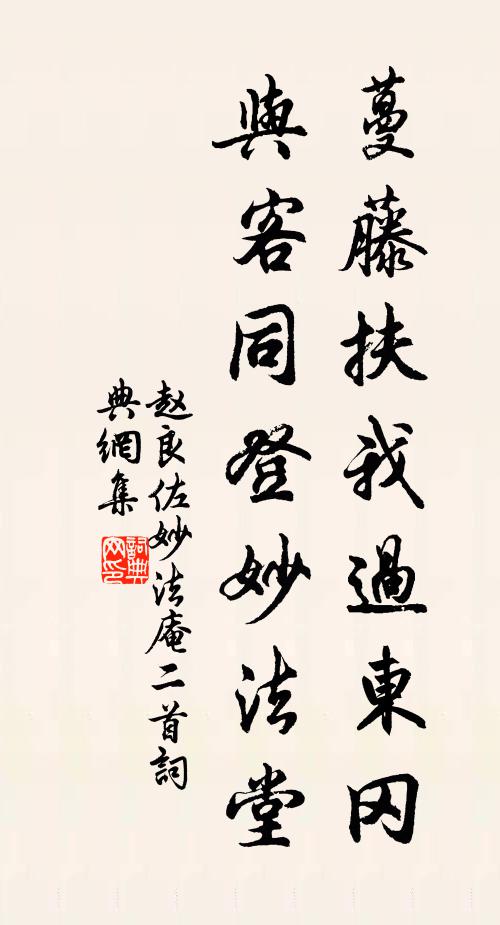 蔓藤扶我過東冈
與客同登妙法堂
赵良佐妙法庵二首詞
典網集
詞典网印